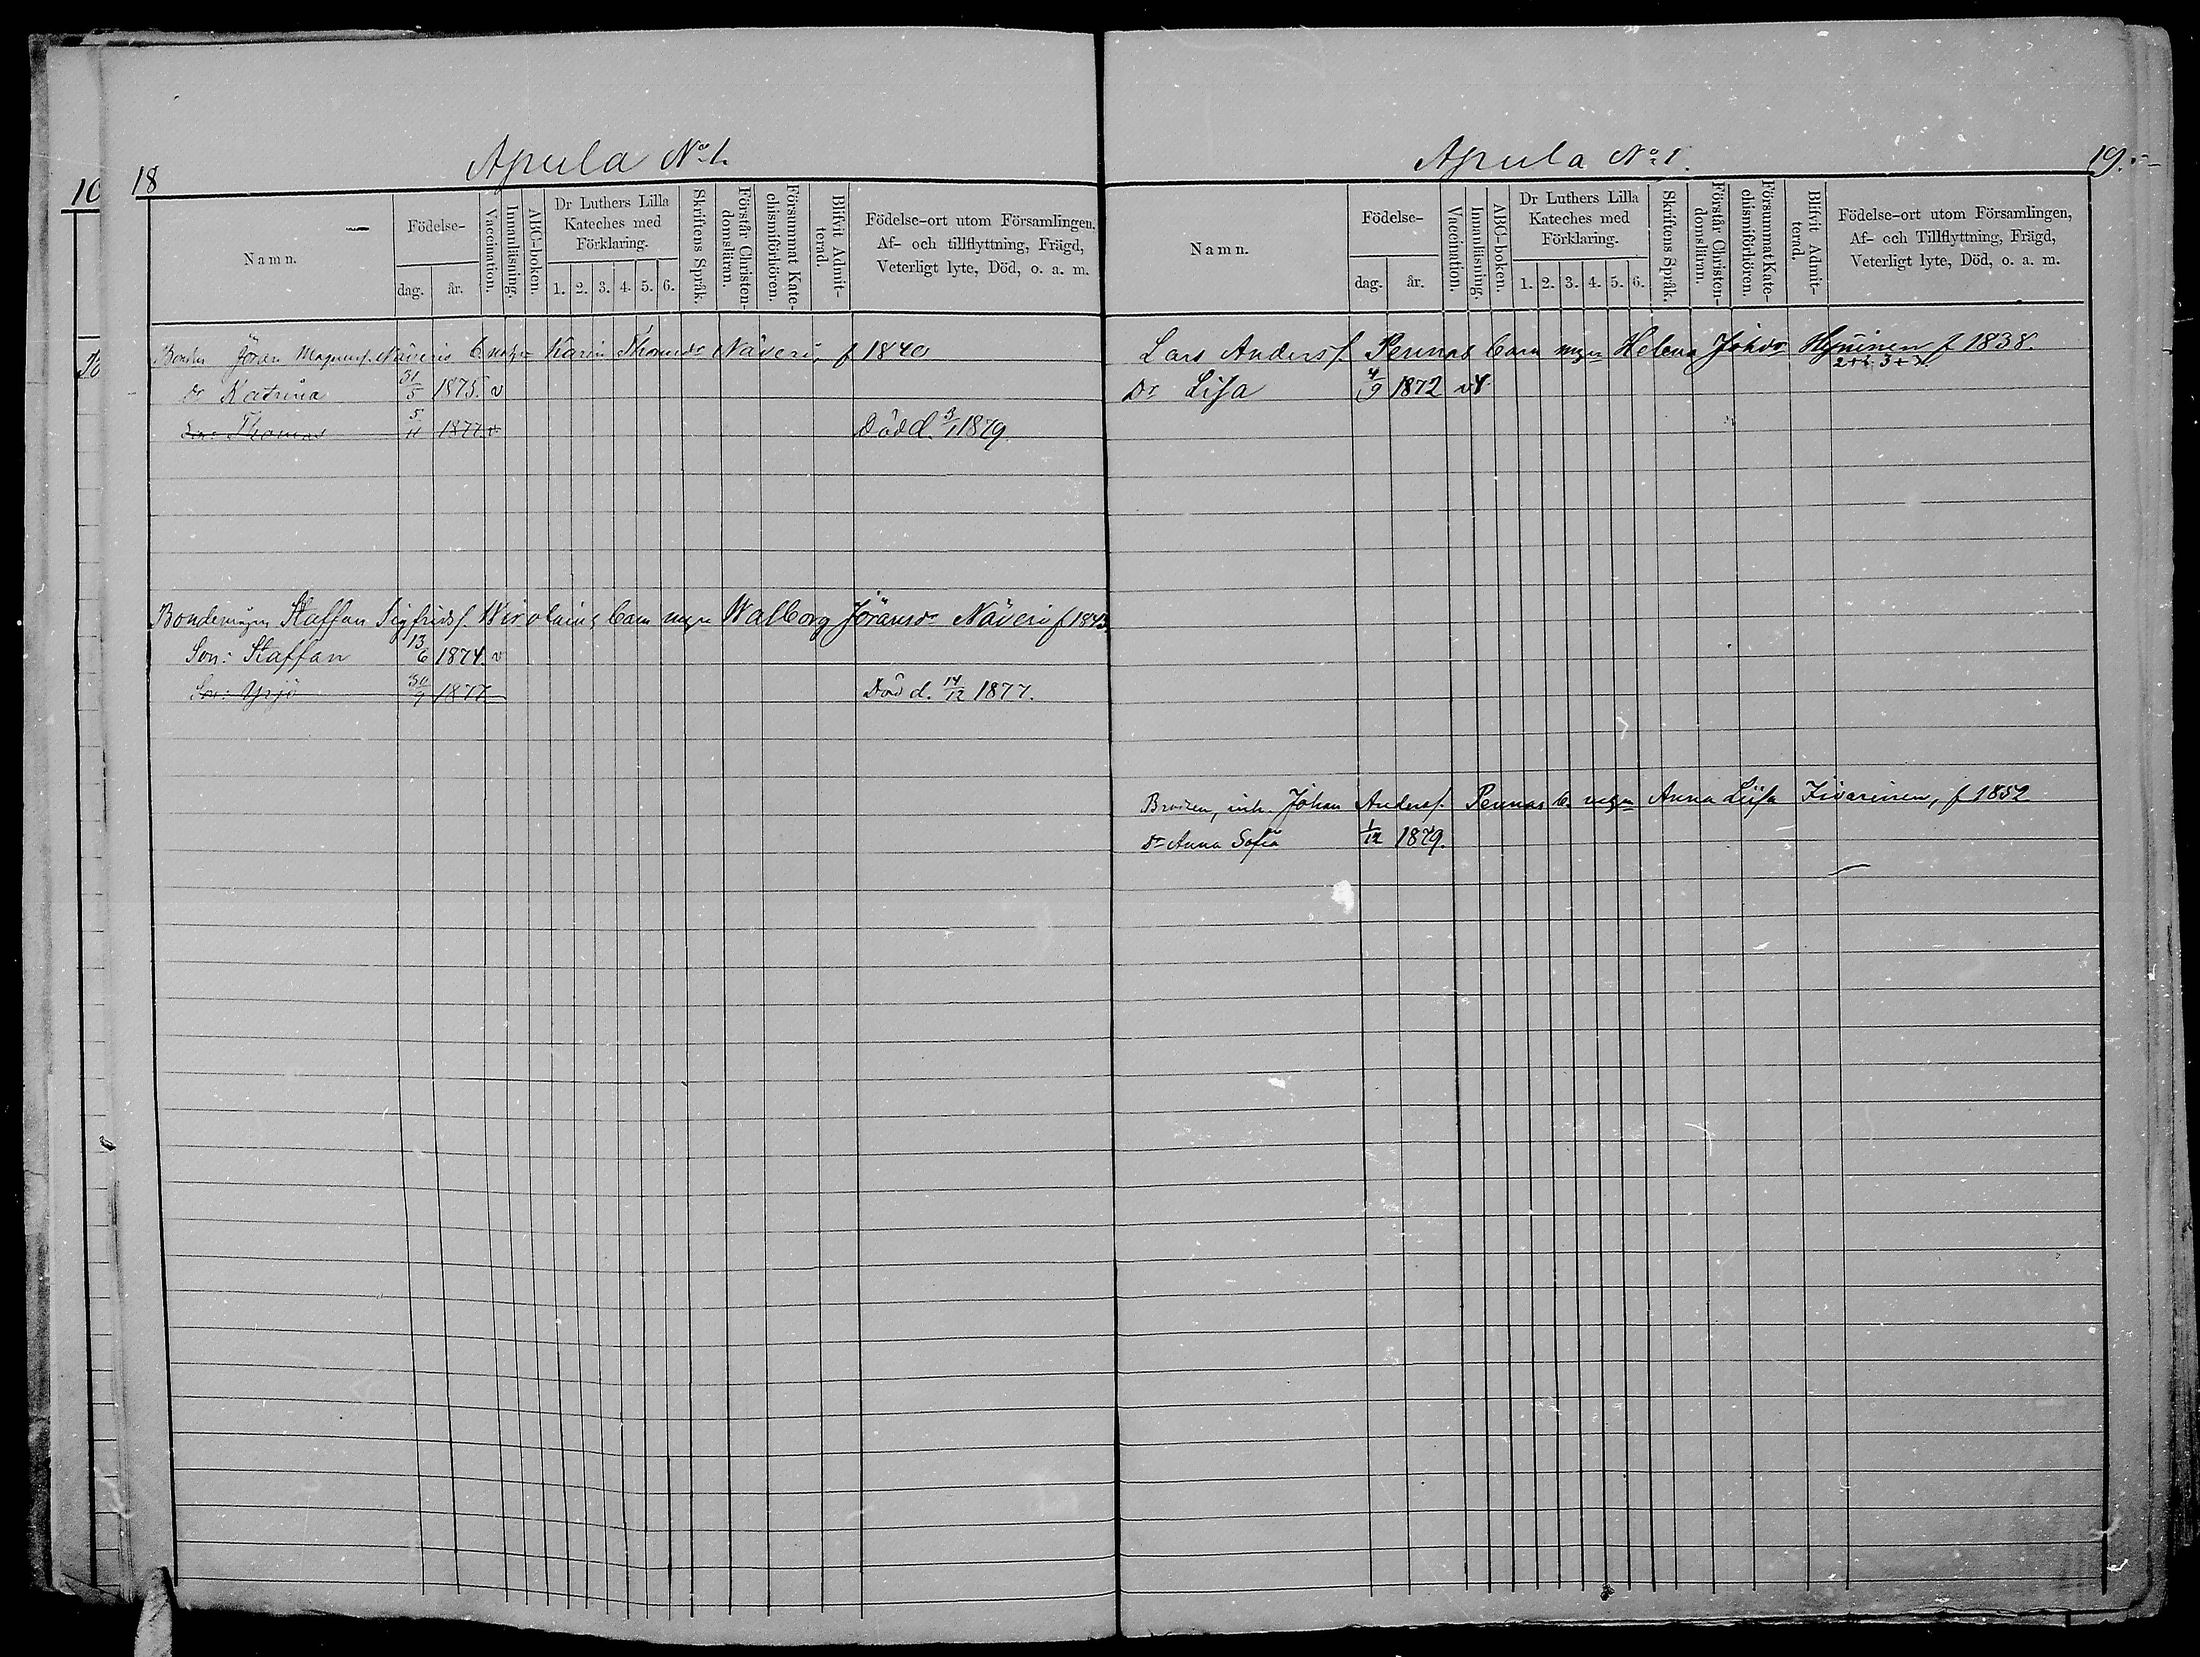 10
18
Apula No 1.
Namn.
Födelse-
dag.
år.
Vaccination.
Innanläsning.
ABC-boken.
Dr Luthers Lilla Kateches med Förklaring.
1. 2. 3. 4. 5. 6.
Skriftens Språk.
Förstår Christendomsläran.
Försummat Katechismiförhören.
Blifvit Admitterad.
Födelse-ort utom Församlingen,
Af- och tillflyttning, Frägd,
Veterligt lyte, Död, o. a. m.
Bonden Jören Magnusf. Näveris b m hu Karin Thomdr Näveri, f 1840
Dr Katrina 31/5 1875. v
Son Thomas 5/11 1877 v Död d. 3/1 1879
Staffan Sigfridsf. Wirolainis barn m Walborg Jöransdr Näveri f 1843
Son: Staffan 13/6 1874. v
Son: Yrjö 30/9 1877 Död d. 14/12 1877.
Apula No 1.
19.
Namn.
Födelse-
dag.
år.
Vaccination.
Innanläsning.
ABC-boken.
Dr Luthers Lilla Kateches med Förklaring.
1. 2. 3. 4. 5. 6.
Skriftens Språk.
Förstår Christendomsläran.
Försummat Katechismiförhören.
Blifvit Admitterad.
Födelse-ort utom Församlingen,
Af- och Tillflyttning, Frägd,
Veterligt lyte, Död, o. a. m.
Lars Andersf. Pennas barn m Helena Johdr Hyninen f 1838.
Dr Lisa 4/9 1872 v
Brodren, Johan Andersf. Pennas b. m Anna Liisa f 1852
Dr Anna Sofia 1/12 1879.